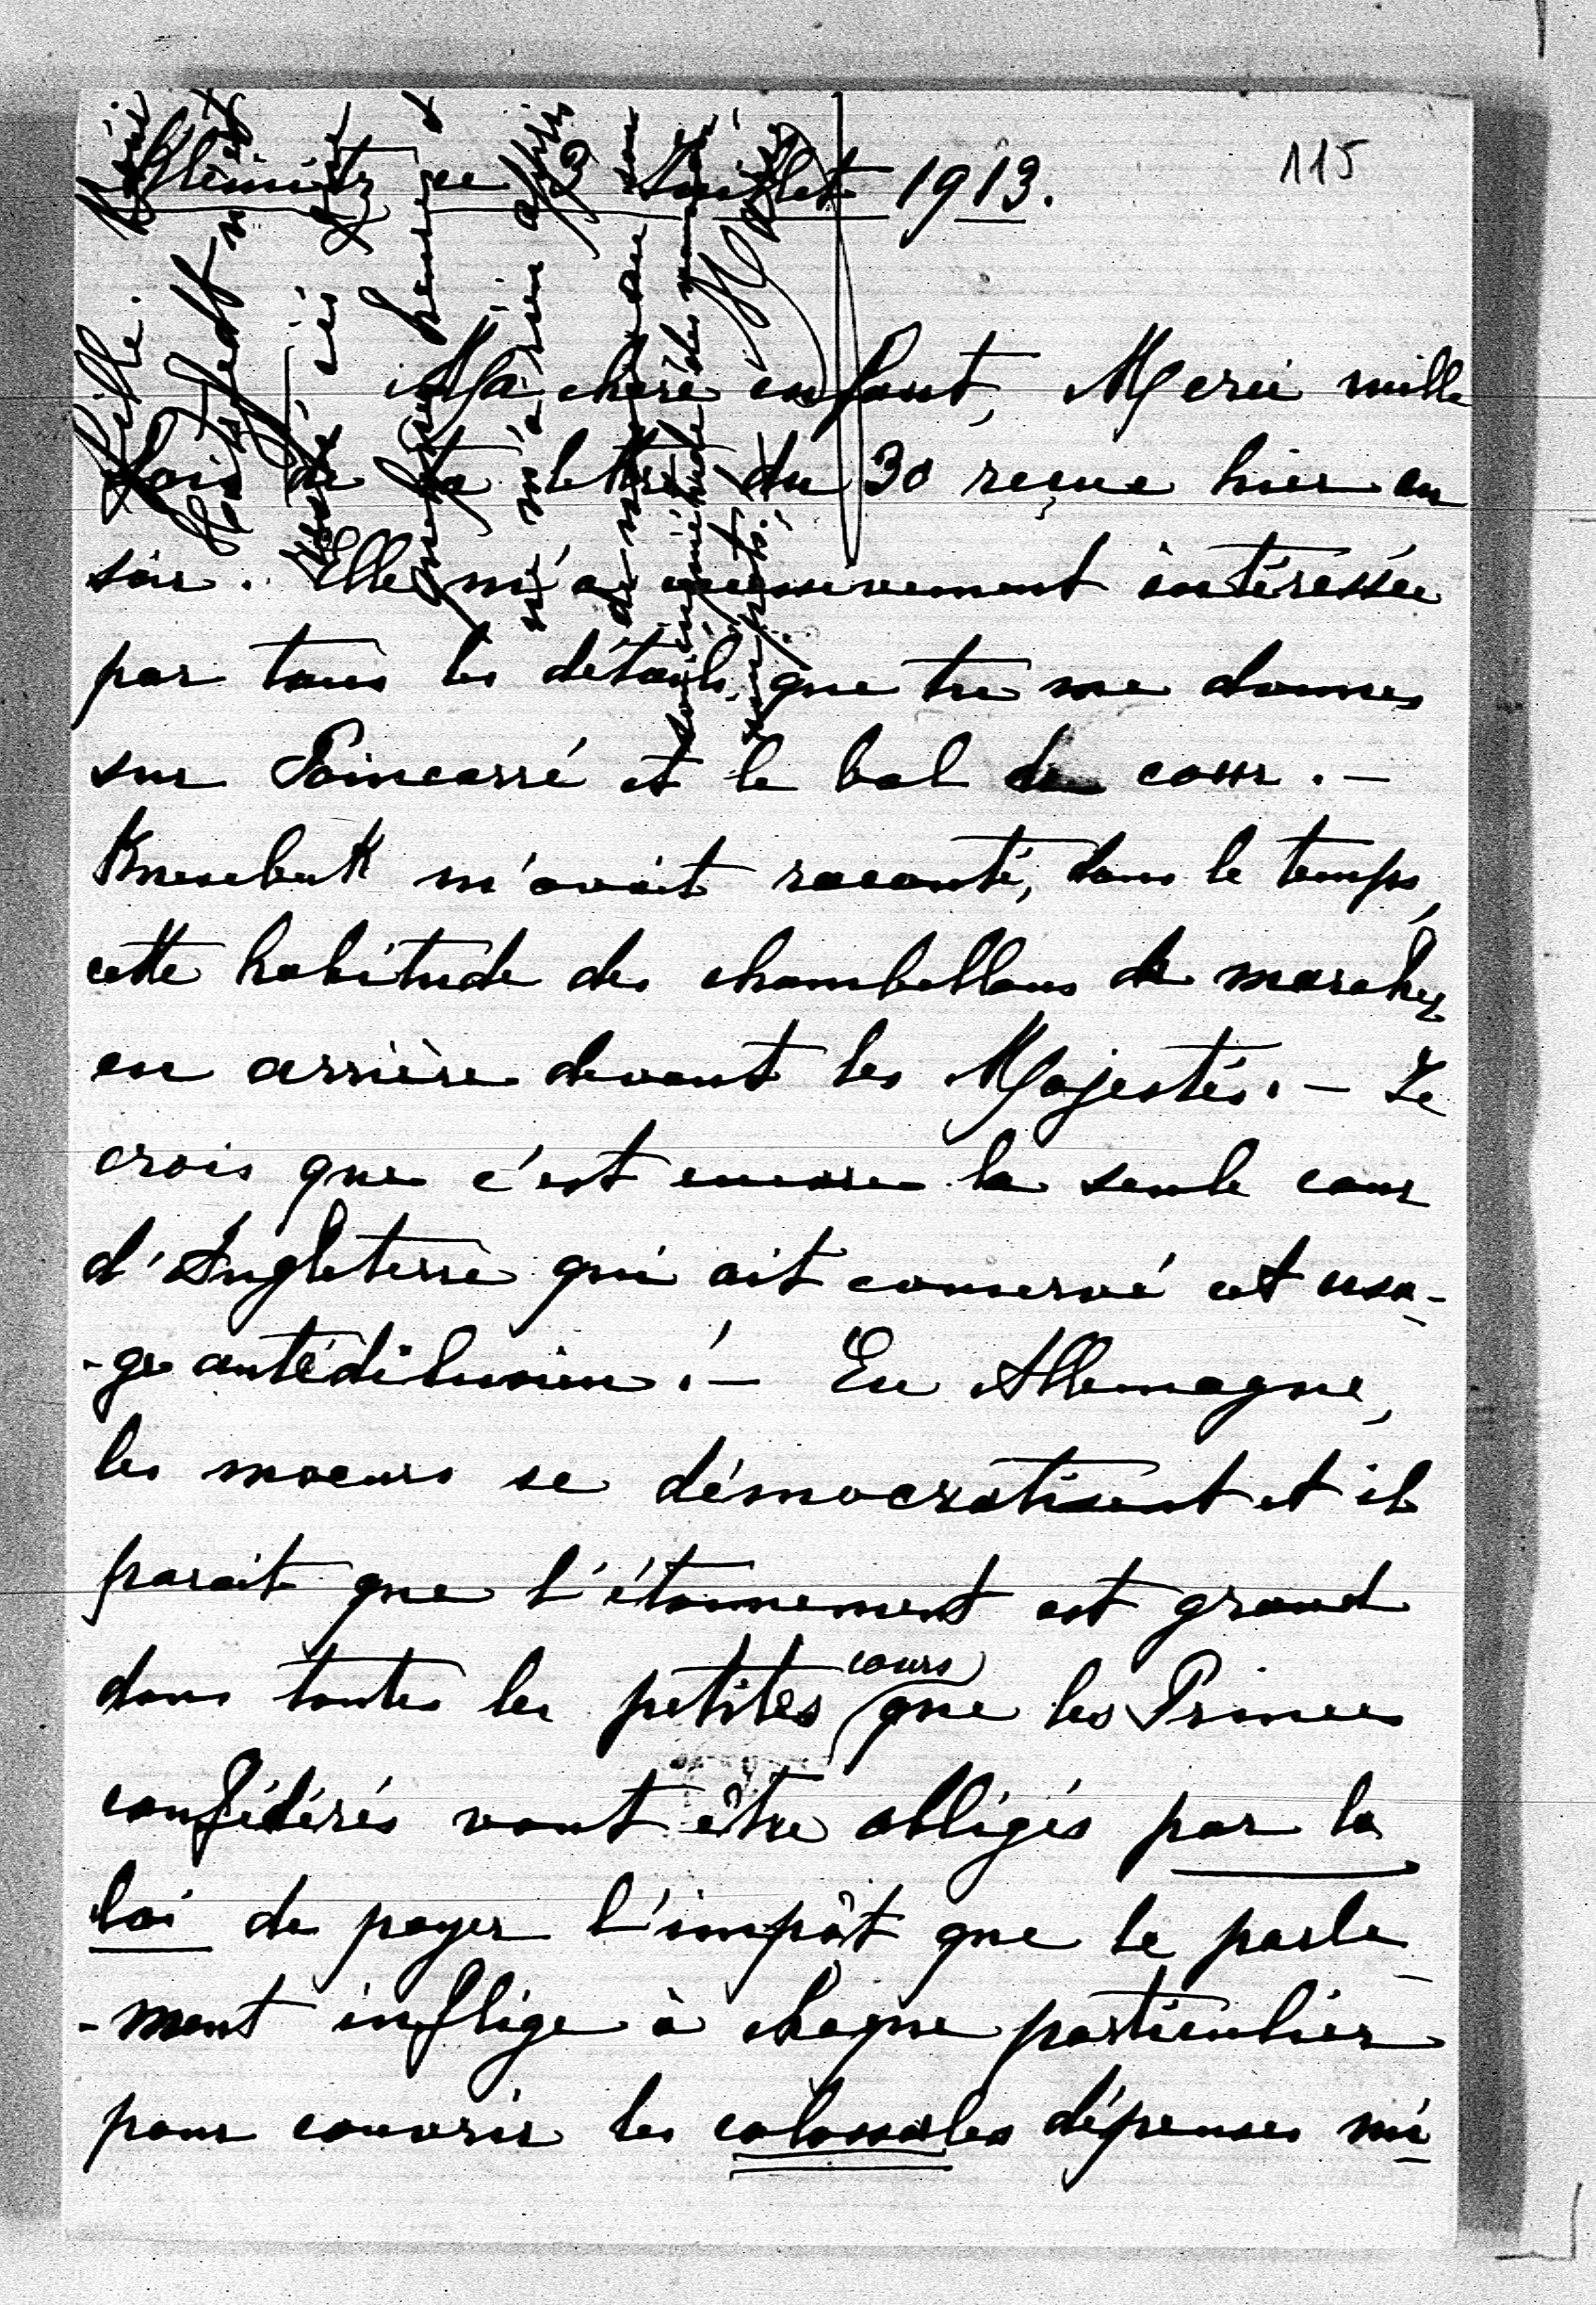 115
Kleinitz ce 3 Juillet 1913.
Ma chère enfant, Merci mille
fois de ta lettre du 30 reçue hier au
soir. Elle m'a excessivement intéressée
par tous les détails que tu me donnes
sur Poincarré et le bal de cour. —
Knesebeck m'avait raconté, dans le temps,
cette habitude des chambellans de marcher
en arrière devant les Majestés. — Je
crois que c'est encore la seule cour
d'Angleterre qui ait conservé cet usa-
-ge antédiluvien! — En Allemagne,
les moeurs se démocratisent et il
parait que l'étonnement est grand
dans toutes les petites cours que les Princes
confédérés vont être obligés par la
loi de payer l'impôt que le parle-
-ment inflige à chaque particulier
pour couvrir les colossales dépenses mi-